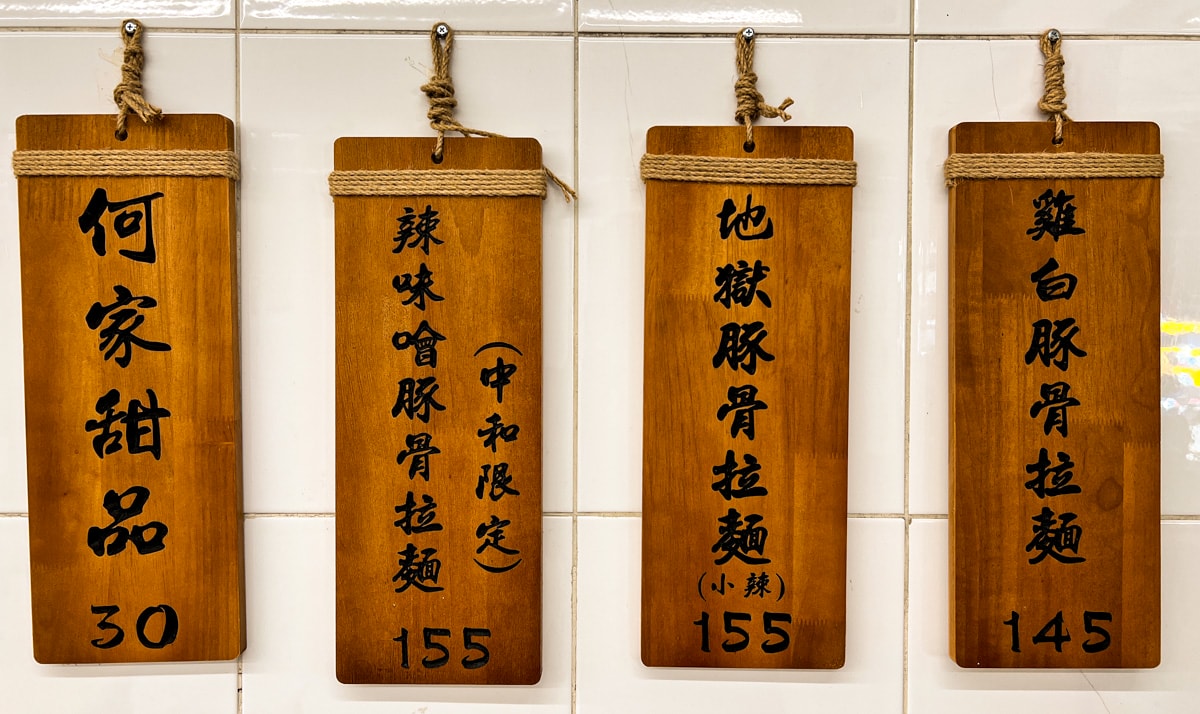 何家甜品
30
辣味噲豚骨拉麵
(中和限定)
155
地獄豚骨拉麵
(小辣)
155
雞白豚骨拉麵
145